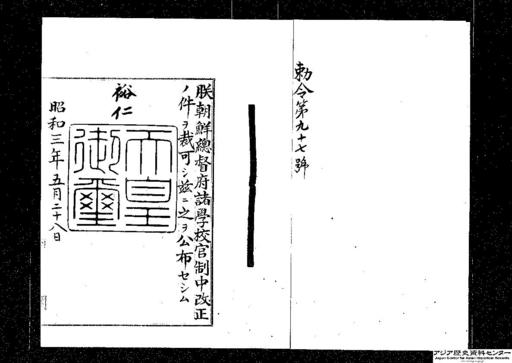 勅令第九十七號
朕朝鮮總督府諸學校官制中改正
ノ件ヲ裁可シ茲ニ之ヲ公布セシム
裕仁
天皇
御璽
昭和三年五月二十八日
アジア歴史資料センター
Japan Center for Asian Historical Records